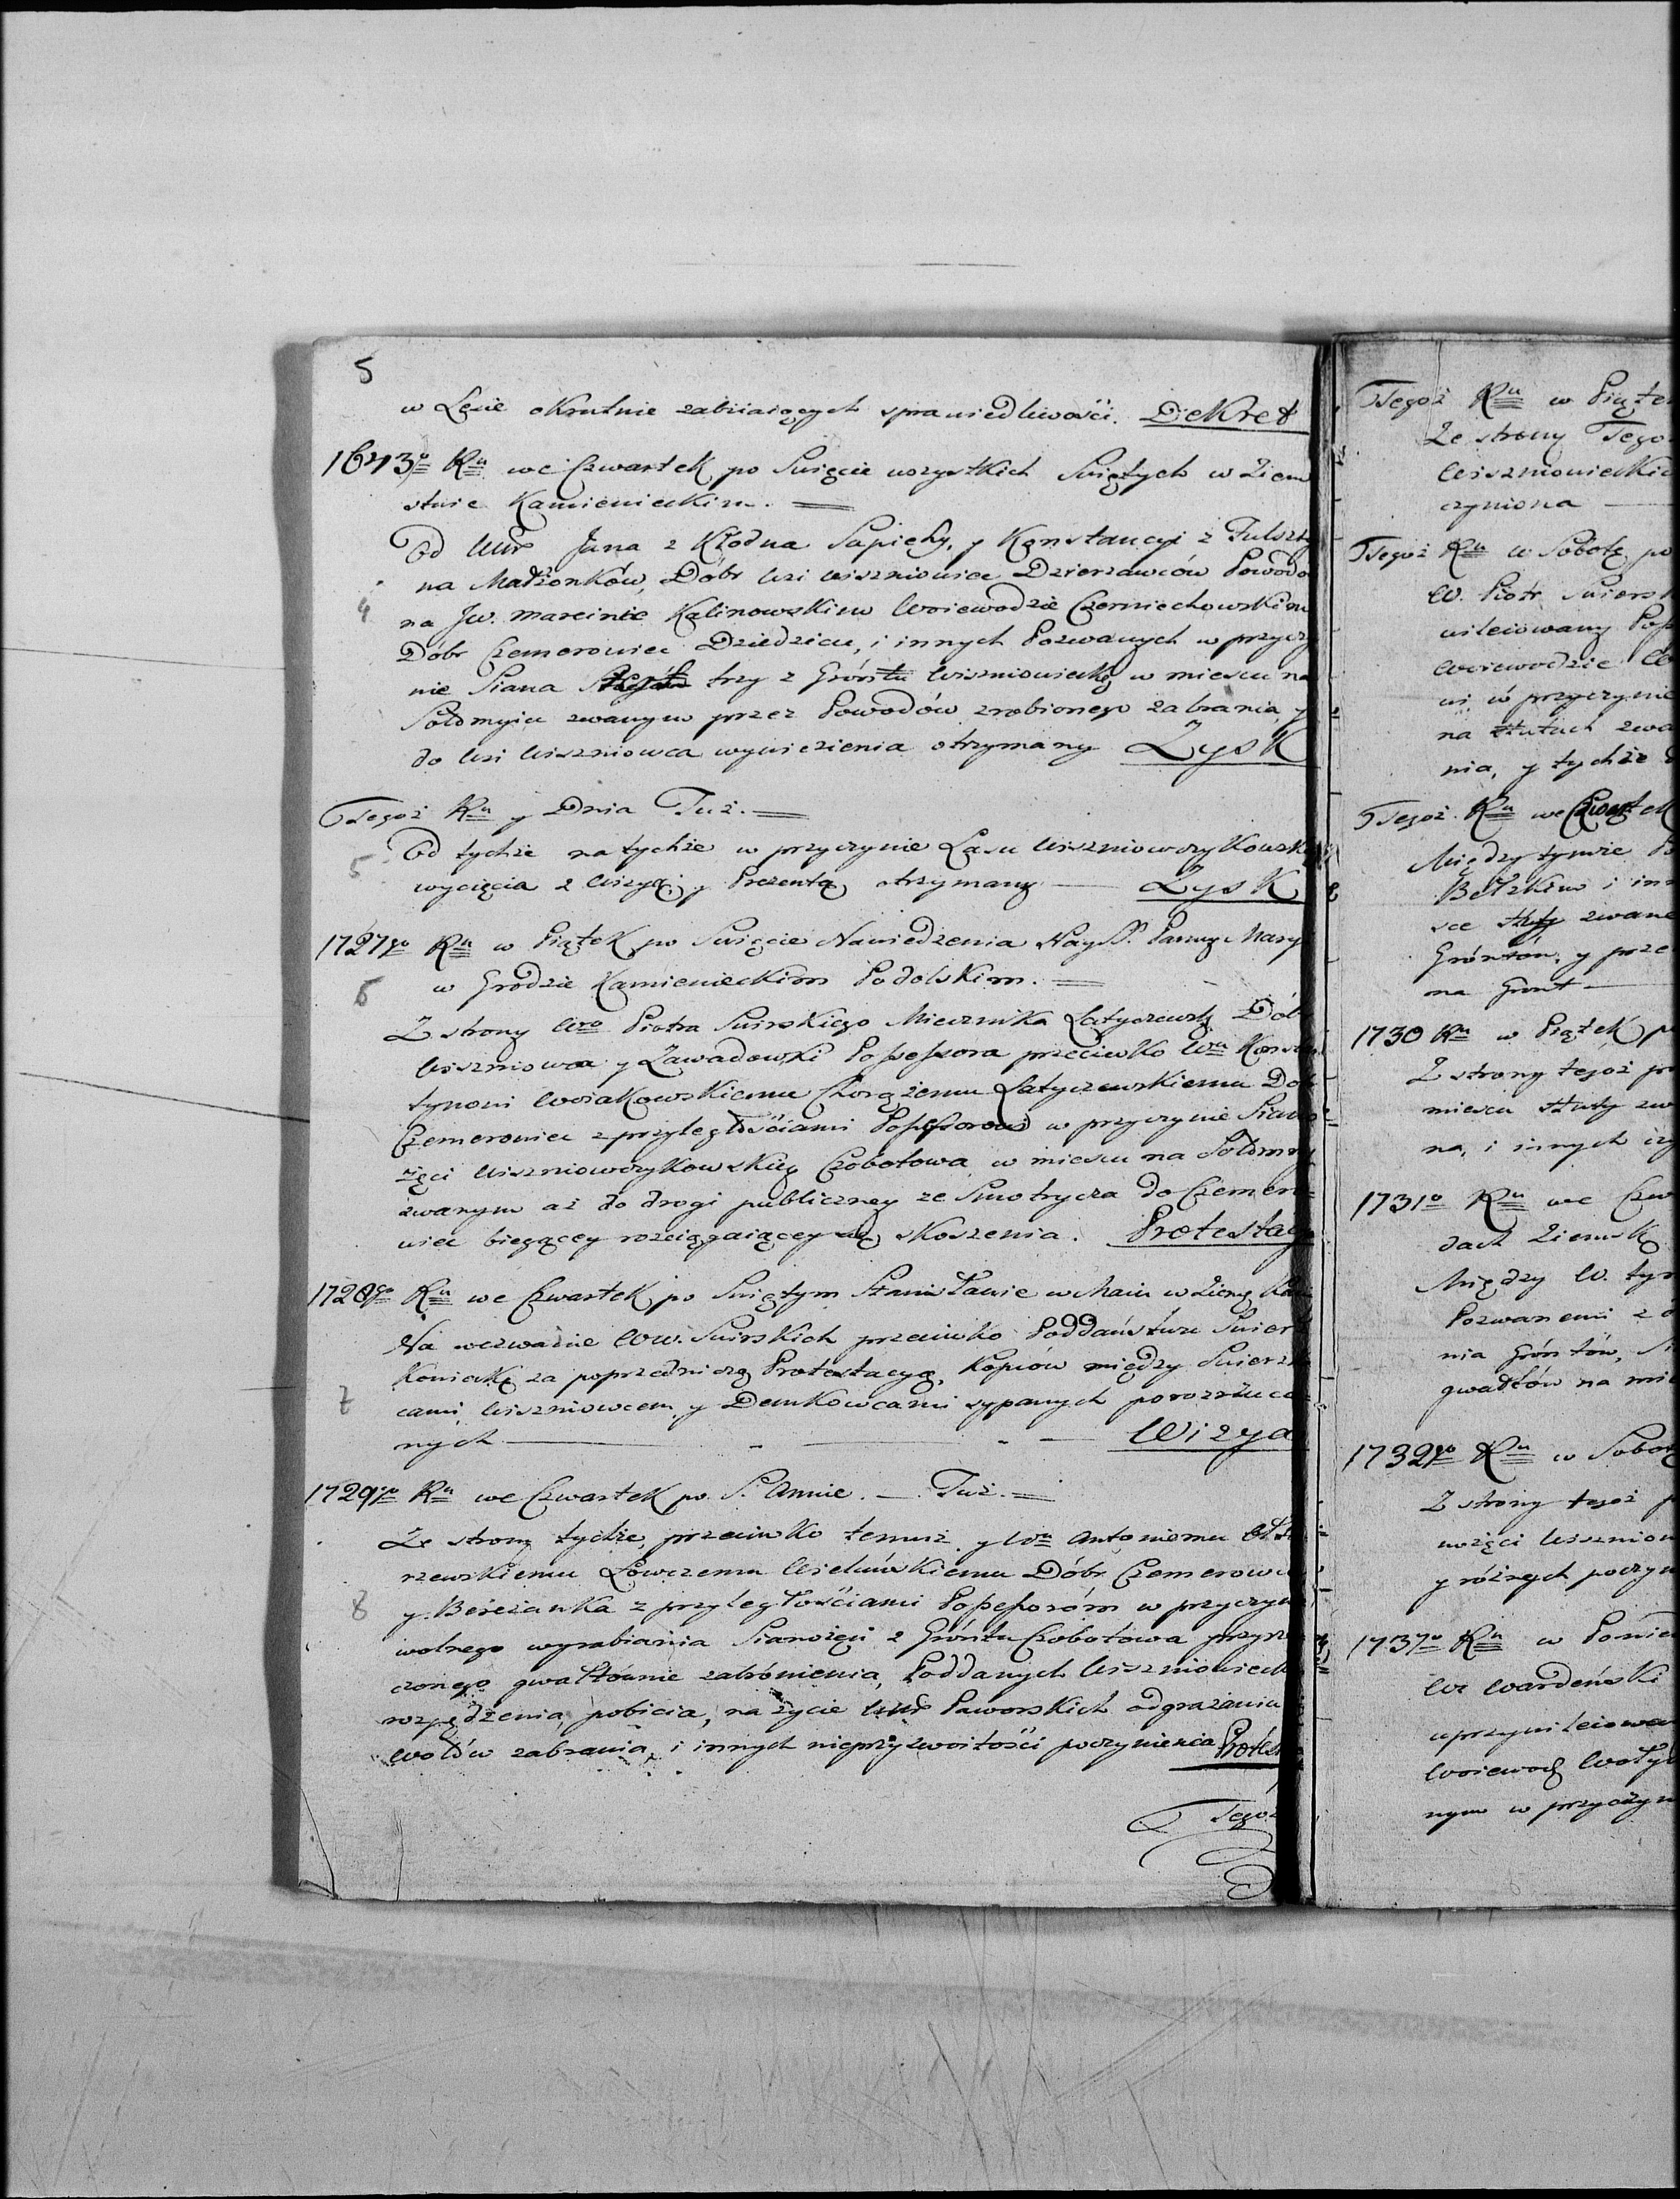 5
w Lesie okrutnie zabiiaiących sprawiedliwości. Dekret
1643o Ru we Czwartek po Swięcie wszystkich Swiętych w Ziem
stwie Kamienieckim.
Od Jana z Kłodna Sapiehy, y Konstancyi z Fulszty
na Małżonków, Dóbr wsi Wiszniowca Dzierzawców Powodo
na Jw. Marcinie Kalinowskim Woiewodzie Czerniechowskim
4
Dóbr Czemerowiec Dziedzicu, i innych Pozwanych w przyczy
nie Siana trzy z Gróntu Wiszniowieckg w miescu na
Sołomyiu zwanym przez Powodów zrobionego zabrania y
do wsi Wiszniowca wywiezienia otrzymany Zysk
Tegoż Ru y Dnia Tuż.
Od tychże na tychże w przyczynie Lasu Wiszniowczykowsk
5
wycięcia z Wizyą y Prezentą otrzymany Zysk
1727go Ru w Piątek po Swięcie Nawiedzenia Nayś. Panny Mary
w Grodzie Kamienieckim Podolskim.
6
Z strony Wgo Piotra Swirskiego Miecznika Latyczewsk Dób
Wiszniowca y Zawadowki Possessora przeciwko Wu Konst
tynowi Woiakowskiemu Chorążemu Latyczewskiemu Dob
Czemerowiec z przyległościami Possessorowi w przyczynie Siano
żęci Wiszniowczykowskiey Czobotowa w miescu na Sołomy
zwanym aż do drogi publiczney ze Smotrycza do Czemero
wiec biegącey rozciągaiącey się skoszenia. Protestacy
1728go Ru we Czwartek po Swiętym Stanisławie w Maiu w Ziem Kam
Na wezwanie WW. Swirskich przeciwko Poddaństwu Swier
Konieckę za poprzedniczą Protestacyą, Kopców między Swierz
7
cami, Wiszniowcem y Demkowcami sypanych porozrzuca
nych Wizya
1729go Ru we Czwartek po S. Annie. Tuż.
Ze strony tychże, przeciwko temuż y Wu Antoniemu
rzewskiemu Łowczemu Wieluńskiemu Dóbr Czemerowi
8
y Bereżanka z przyległościami Possessoróm w przyczyn
wolnego wyrabiania Sianożęci z Gróntu Czobotowa przyrze
czonego gwałtównie zabrónienia, Poddanych Wiszniowieck
rozpędzenia, pobicia, na życie Jaworskich odgrażania
Wołów zabrania, i innych nieprzyzwoitości poczynienia Protest
Tegoż
Tegoż Ru w Piątek
Ze strony Tego
Wiszniowieckie
czyniona
Tegoż Ru w Sobotę po
W. Piotr Swiersk
wileiowany Poss
Woiewodzie
wi w przyczynie
na zwa
nia, y tychże
Tegoż Ru we Czwartek
Między tymże Po
Bełzkim i inn
sce zwane
Gróntów, y prze
na Grunt
1730 Ru w Piątek p
Z strony tegoż pr
miescu zw
na, i innych czy
1731o Ru we Czw
dach Ziemsk
Między W. tym
Pozwanemi z
nia Gróntów, Si
gwałtów na mie
1732go Ru w Sobot
Z strony tegoż p
nożęci Wiszniow
y różnych poczyn
1737o Ru w Ponied
W Wardeński
uprzywileiowa
Woiewod Wołyń
nym w przyczyn